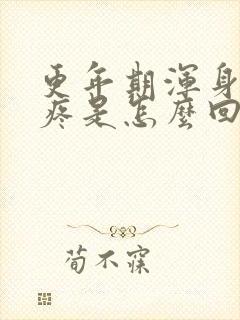 更年期渾身
疼是怎麼回
荀不寐